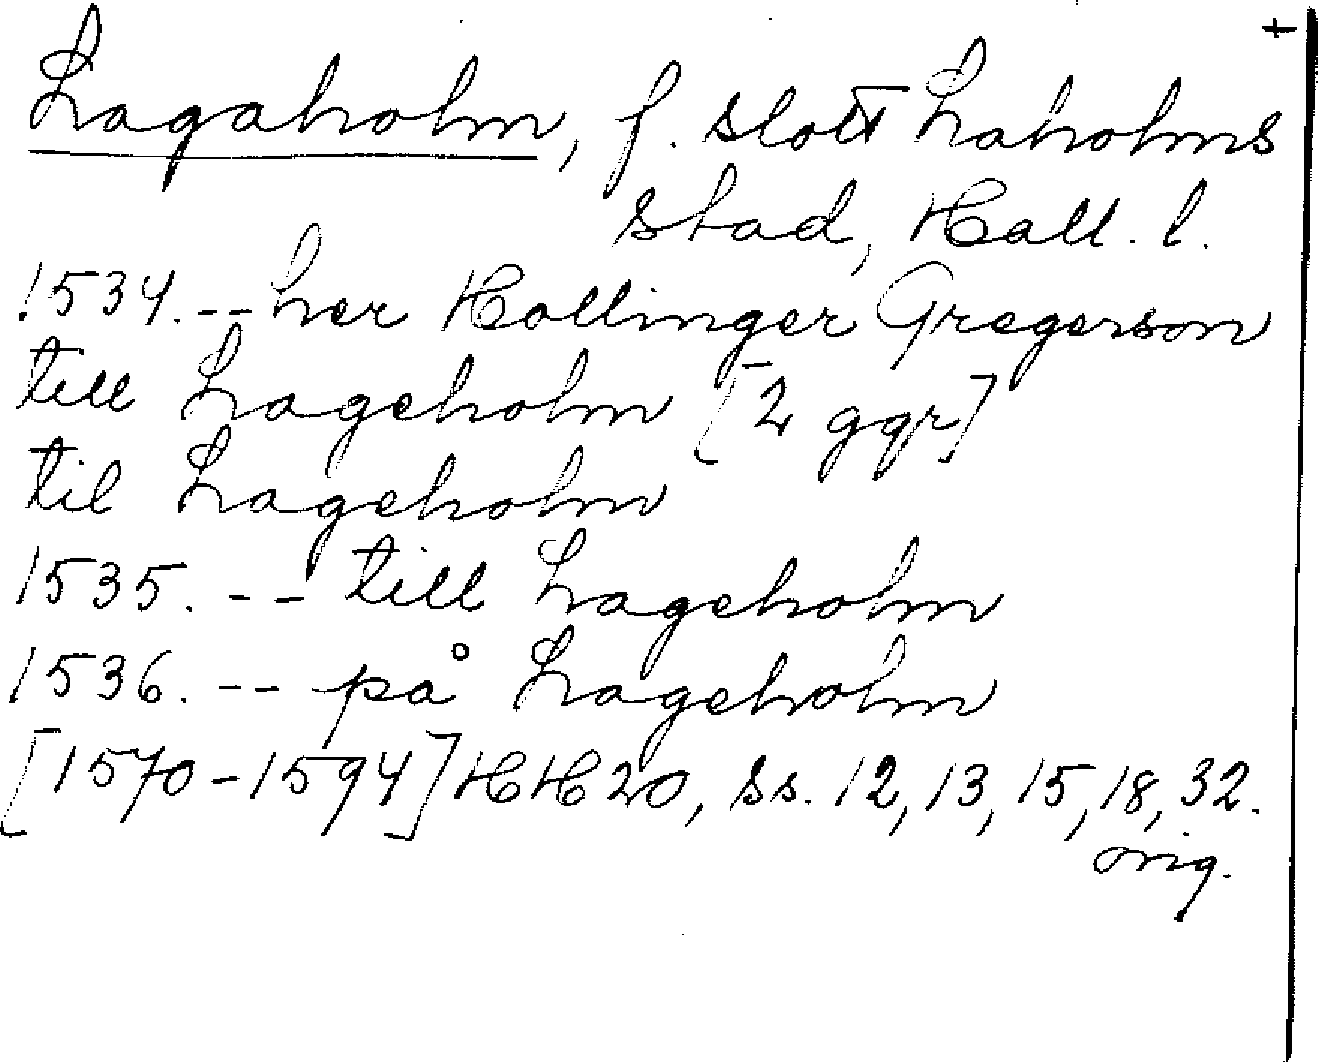 +
Lagaholm, f. slott Laholms
stad, Hall. l.
1534. -- her Hollinger Gregerson
till Lageholm [2 ggr]
til Lageholm
1535. -- till Lageholm
1536. -- på Lageholm
[1570-1594] HH20, ss. 12, 13, 15, 18, 32.
orig.